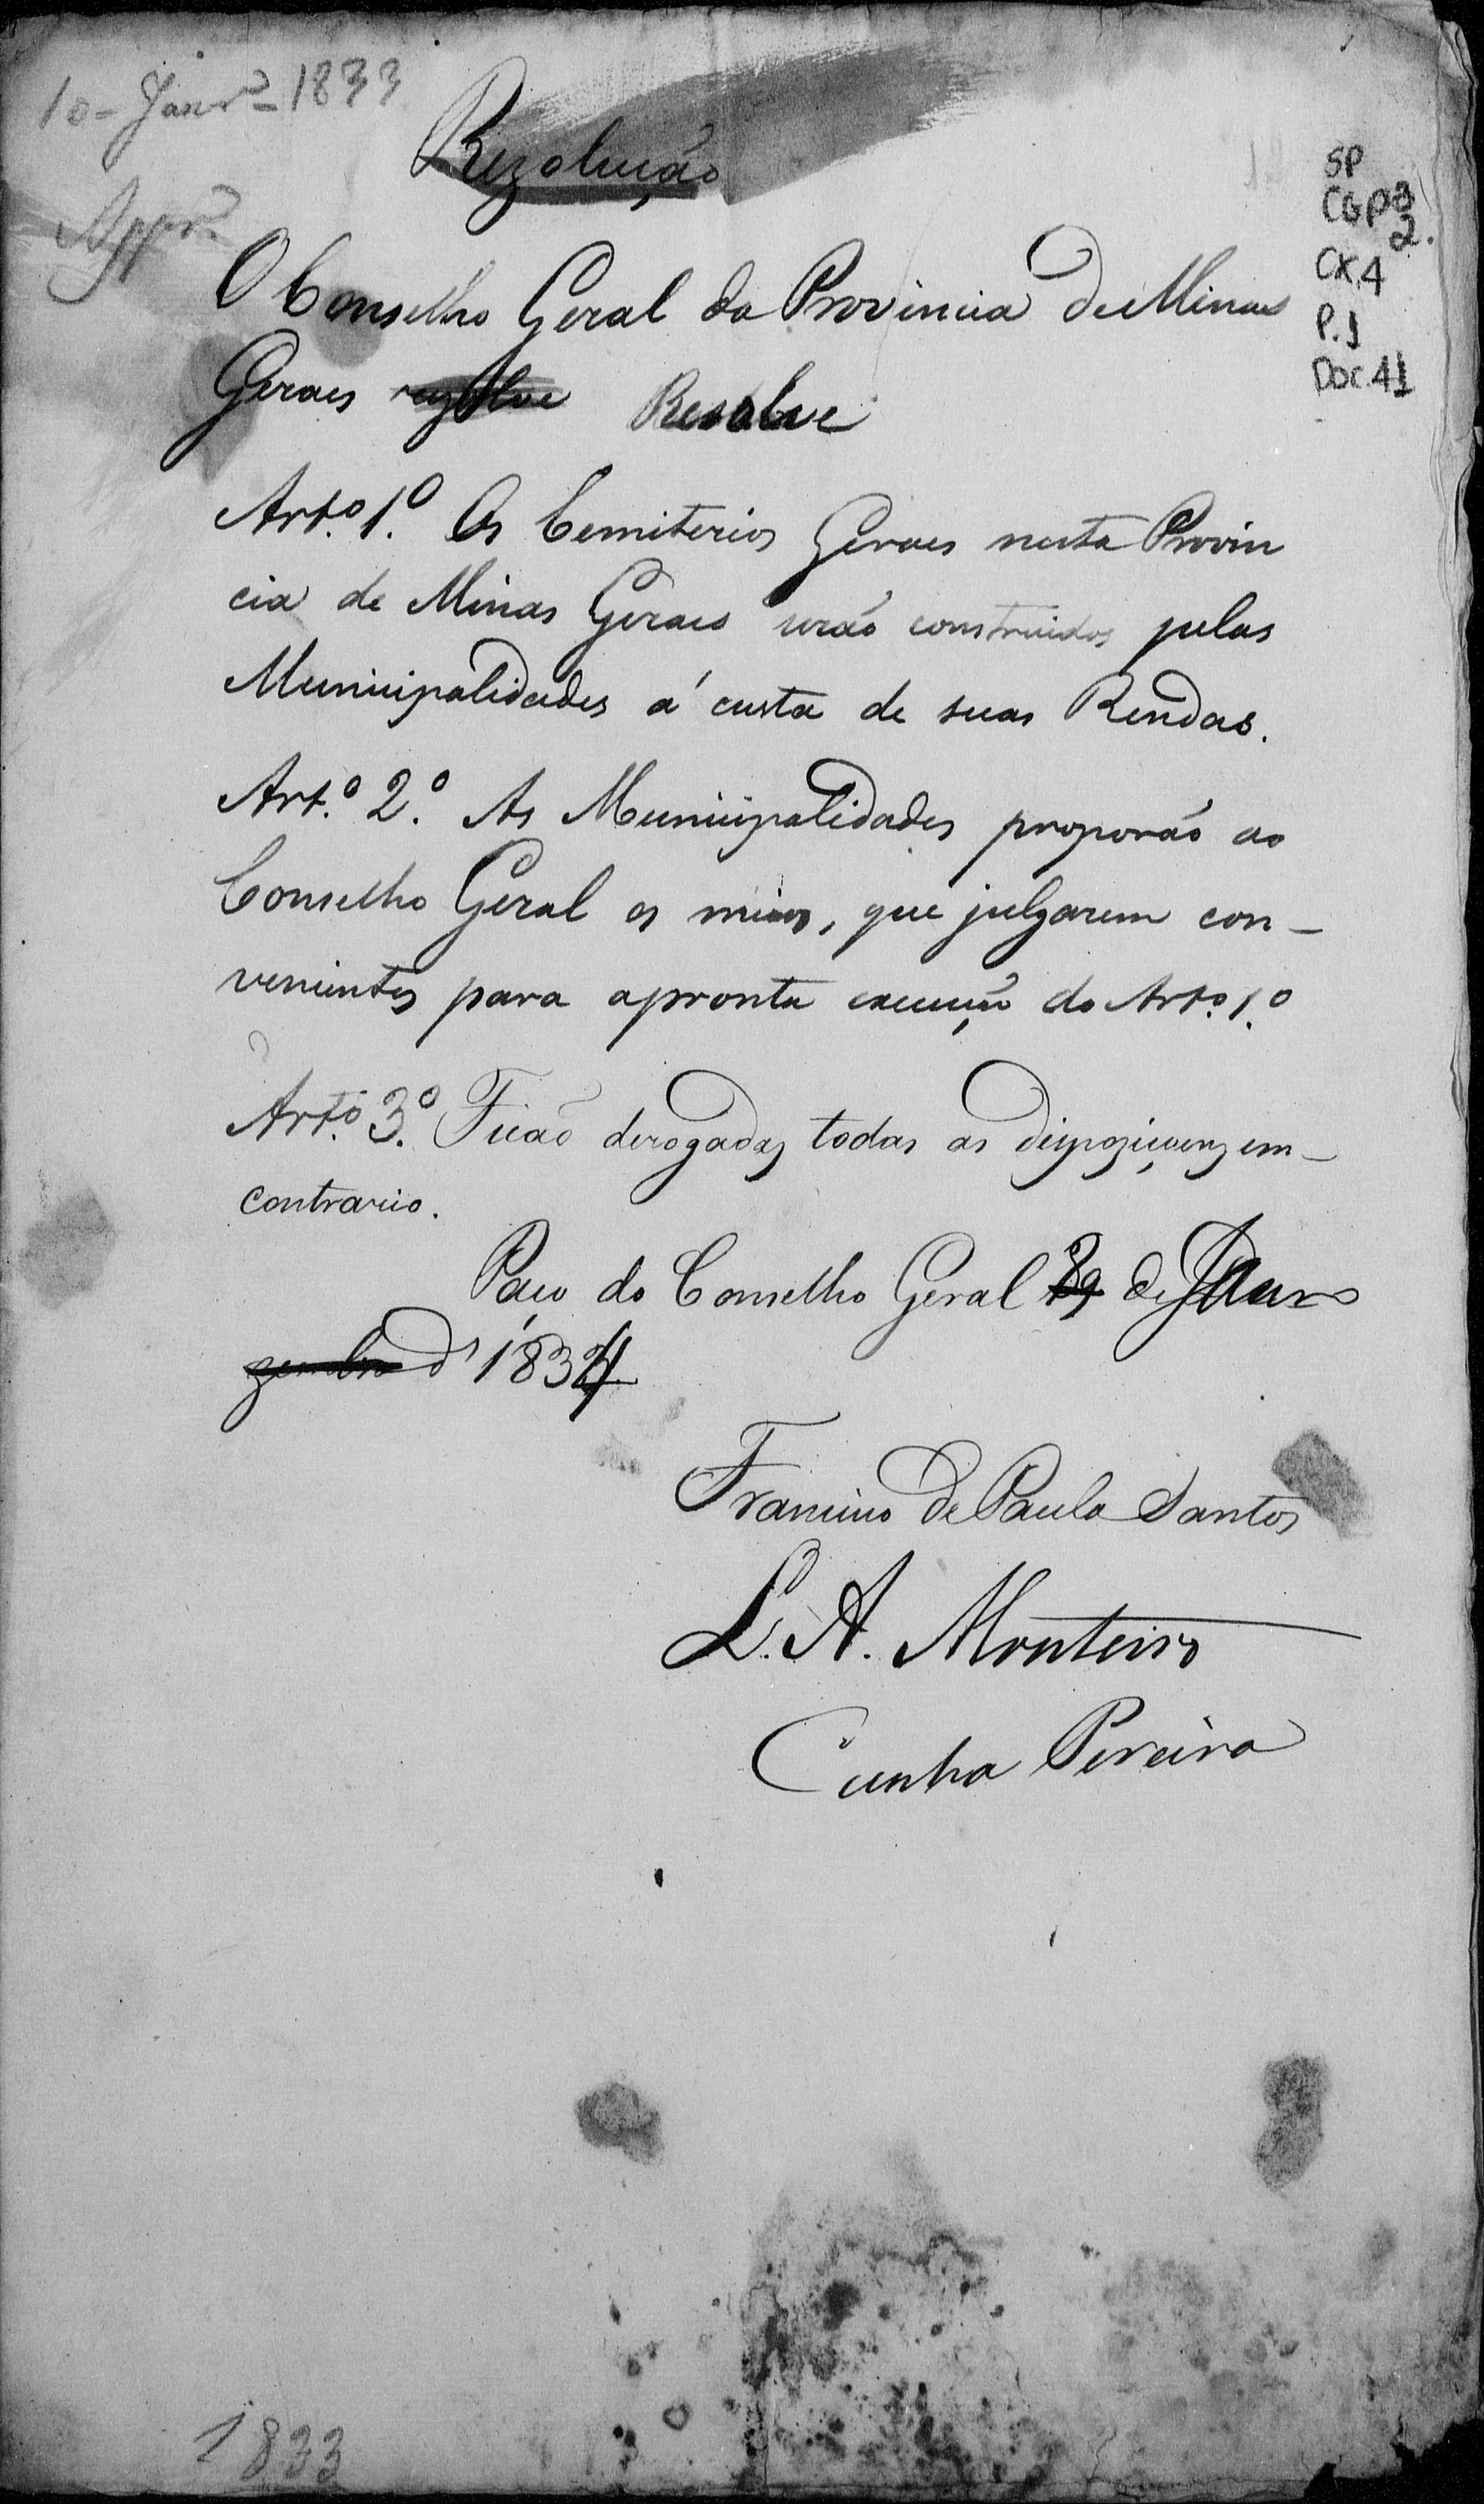 10 - Janrº - 1833
Rezolução
SP
CGP3
2.
CX.4
P.J
Doc.41
Apprº
O Conselho Geral da Provincia de Minas
Geraes rezolve Resolve
Artº. 1º. Os Cemiterios Geraes nesta Provin
cia de Minas Geraes serão construidos pelas
Municipalidades á custa de suas Rendas.
Art.º 2.º As Municipalidades proporão ao
Conselho Geral os meios, que julgarem con-
venientes para apronta execução do Artº. 1.º
Artº. 3º. Ficão derogadas todas as dispoziçoens em-
contrario.
Paço do Conselho Geral de Janro
zembro d' 1834
Francisco de Paula Santos
L. A. Monteiro
Cunha Pereira
1833